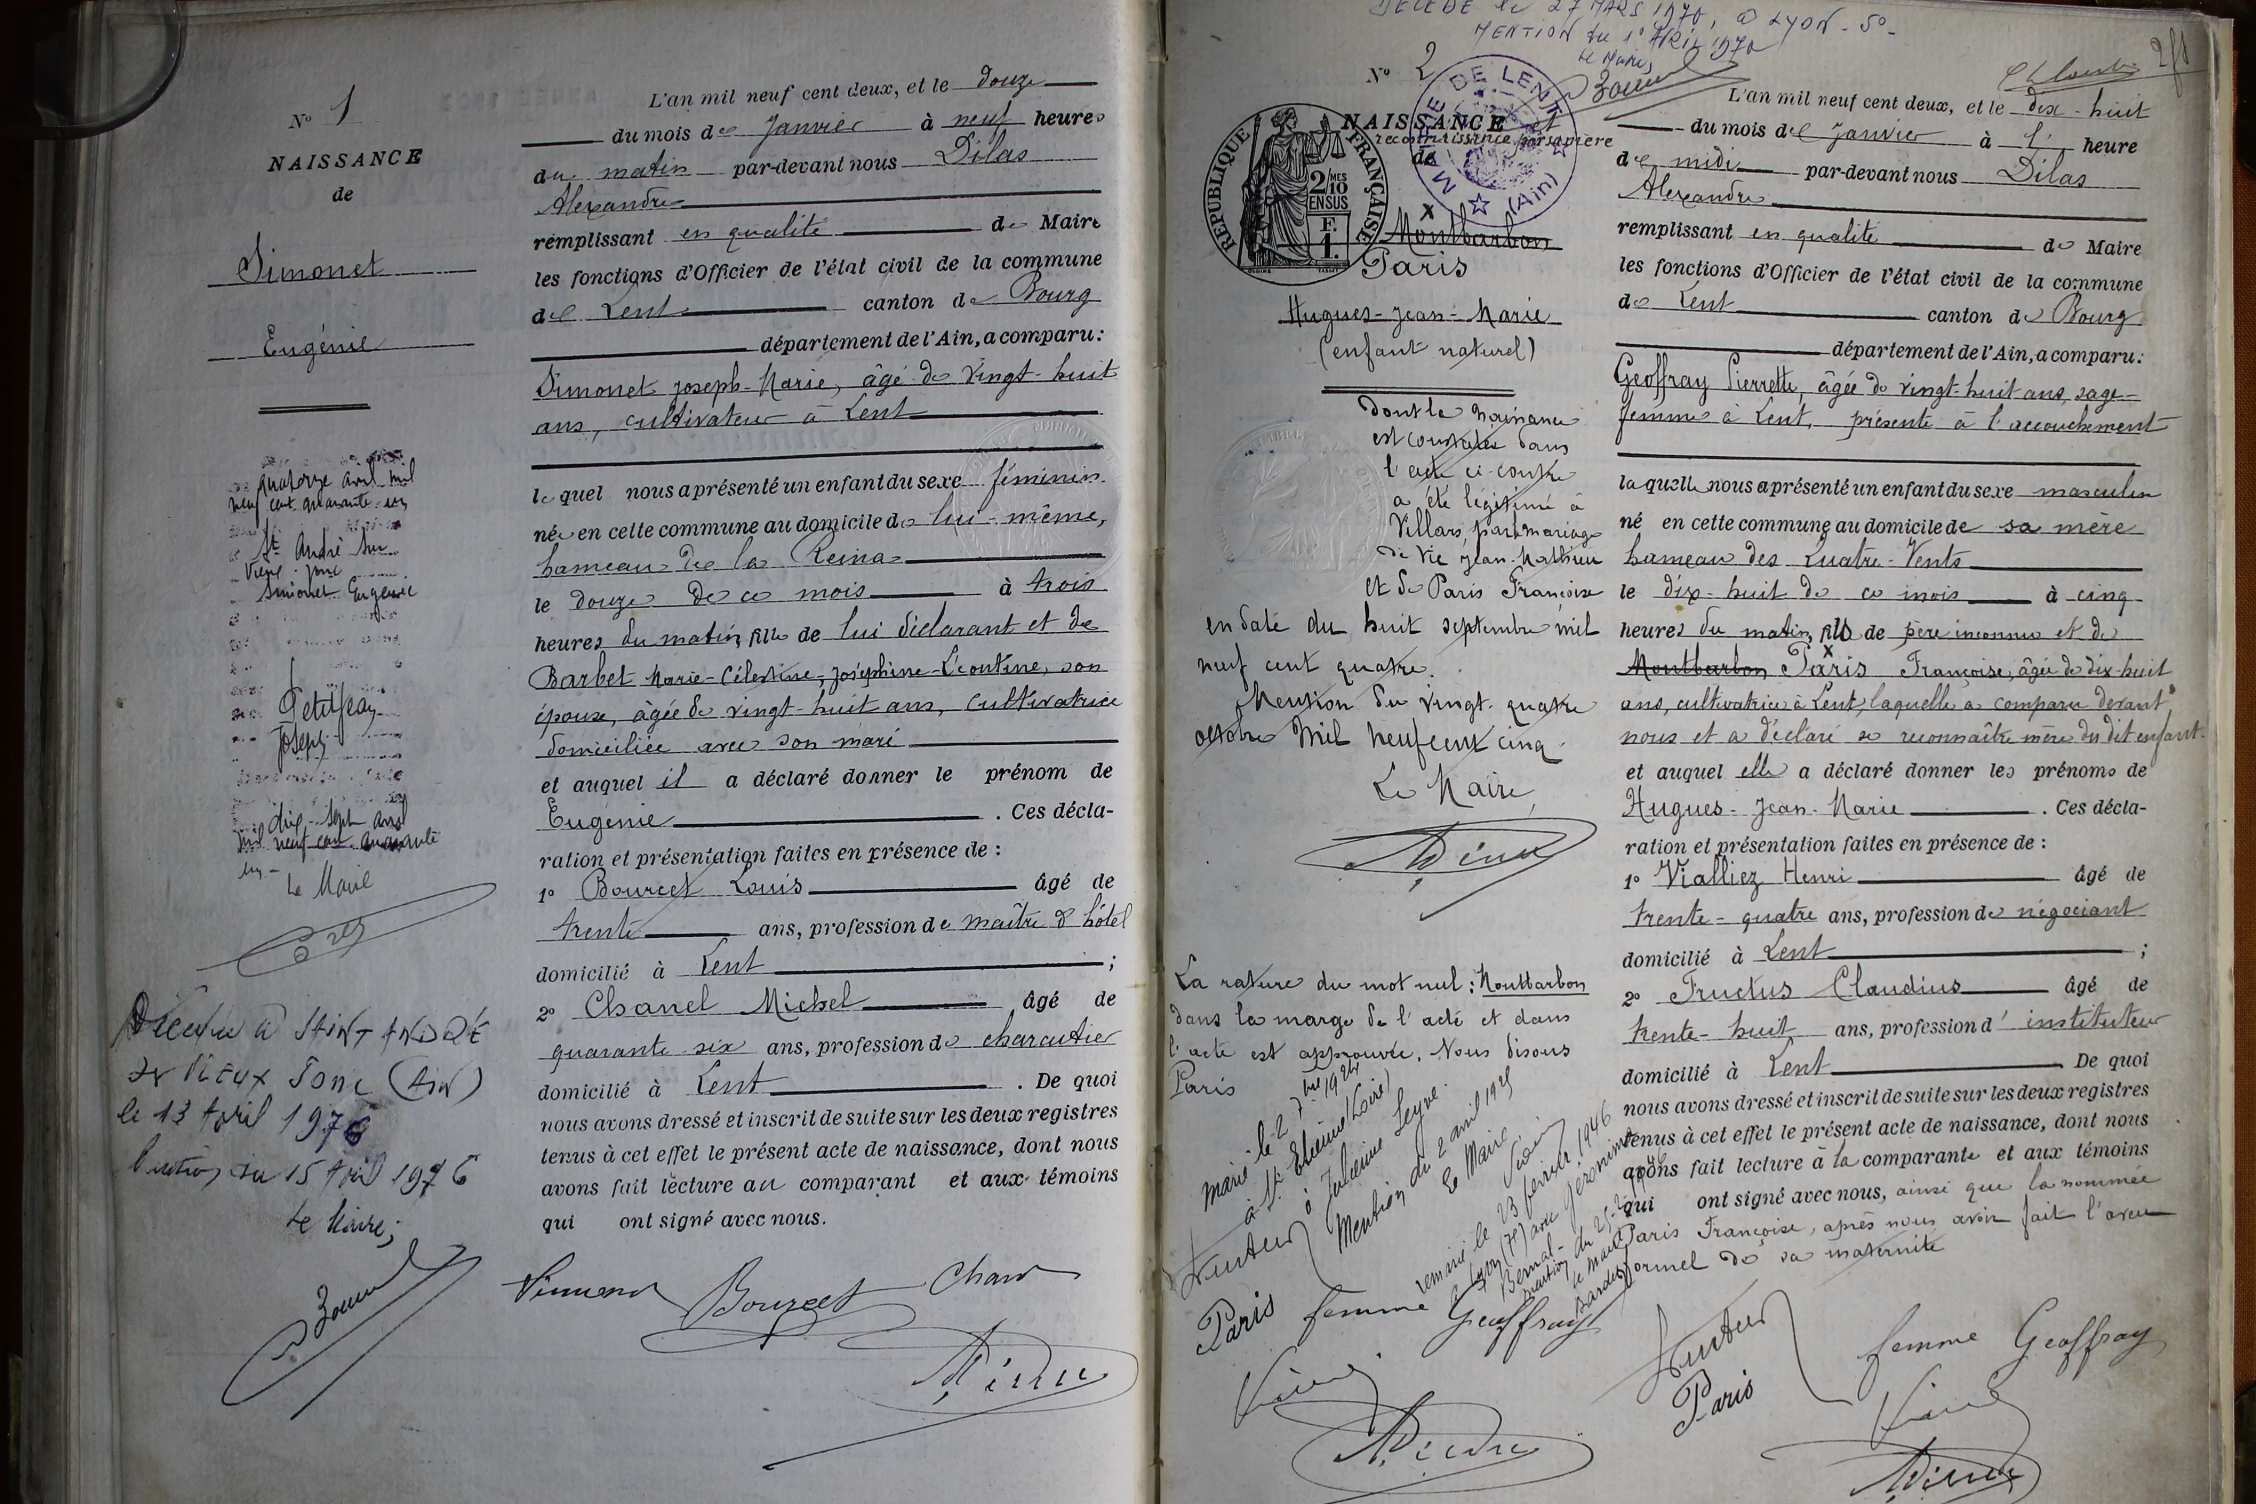 N° 1
NAISSANCE
de
Simonet
Eugénie
quatorze avril mil
neuf cent quarante-un
St André sur
Vieux-Jonc
Simonet Eugénie
Petitjean
Joseph
dix-sept avril
mil neuf cent quarante
un
Le Maire
Décédée à SAINT ANDRÉ
sr VIEUX Jonc (Ain)
le 13 Avril 1976
Mention du 15 Avril 1976
Le Maire;
L'an mil neuf cent deux, et le douze
du mois de Janvier à neuf heures
du matin par-devant nous Dilas
Alexandre
remplissant en qualité de Maire
les fonctions d'Officier de l'état civil de la commune
de Lent canton de Bourg
département de l'Ain, a comparu:
Simonet Joseph-Marie, âgé de vingt-huit
ans, cultivateur à Lent
lequel nous a présenté un enfant du sexe féminin
née en cette commune au domicile de lui-même,
hameau de la Reina
le douze de ce mois à trois
heures du matin, fille de lui déclarant et de
Barbet Marie-Célestine-Joséphine-Léontine, son
épouse, âgée de vingt-huit ans, cultivatrice
domiciliée avec son mari
et auquel il a déclaré donner le prénom de
Eugénie . Ces décla-
ration et présentation faites en présence de :
1° Bourcet Louis âgé de
trente ans, profession de maître d'hôtel
domicilié à Lent ;
2° Chanel Michel âgé de
quarante-six ans, profession de charcutier
domicilié à Lent . De quoi
nous avons dressé et inscrit de suite sur les deux registres
tenus à cet effet le présent acte de naissance, dont nous
avons fait lecture au comparant et aux témoins
qui ont signé avec nous.
Bourcet
DÉCÉDÉ le 27 MARS 1970, à LYON-5°-
MENTION du 1° AVRIL 1970
Le Maire,
N° 2
MAIRIE DE LENT (Ain)
REPUBLIQUE FRANÇAISE
2/10 MES
EN SUS
F.
1.
NAISSANCE et
reconnaissance par sa mère
de
Montbarbon
Paris
Hugues-Jean-Marie
(enfant naturel)
dont la naissance
est constatée dans
l'acte ci-contre
a été légitimé à
Villars, par mariage
de Vic Jean-Mathieu
et de Paris Françoise
en date du huit septembre mil
neuf cent quatre.
Mention du vingt-quatre
octobre mil neuf cent cinq.
Le Maire,
La rature du mot nul: Montbarbon
dans la marge de l'acte et dans
l'acte est approuvée. Nous disons
Paris
Marié le 27 bre 1924
à St Etienne (Loire)
à Julienne Seyve.
Mention du 2 avril 1925
Le Maire
remarié le 23 février 1946
à Lyon (7e) avec Jéronime
Bernal
Le Maire
Paris femme Geoffray
L'an mil neuf cent deux, et le dix-huit
du mois de Janvier à 1 heure
de midi par-devant nous Dilas
Alexandre
remplissant en qualité de Maire
les fonctions d'Officier de l'état civil de la commune
de Lent canton de Bourg
département de l'Ain, a comparu:
Geoffray Pierrette, âgée de vingt-huit ans, sage-
femme à Lent, présente à l'accouchement
laquelle nous a présenté un enfant du sexe masculin
né en cette commune au domicile de sa mère
hameau des Quatre-Vents
le dix-huit de ce mois à cinq
heures du matin, fils de père inconnu et de
Montbarbon Paris Françoise, âgée de dix-huit
ans, cultivatrice à Lent, laquelle a comparu devant
nous et a déclaré se reconnaître mère du dit enfant.
et auquel elle a déclaré donner les prénoms de
Hugues-Jean-Marie . Ces décla-
ration et présentation faites en présence de :
1° Vialliez Henri âgé de
trente-quatre ans, profession de négociant
domicilié à Lent ;
2° Fructus Claudius âgé de
trente-huit ans, profession d'instituteur
domicilié à Lent De quoi
nous avons dressé et inscrit de suite sur les deux registres
tenus à cet effet le présent acte de naissance, dont nous
avons fait lecture à la comparante et aux témoins
qui ont signé avec nous, ainsi que la nommée
Paris Françoise, après nous avoir fait l'aveu
formel de sa maternité
femme Geoffray
Paris